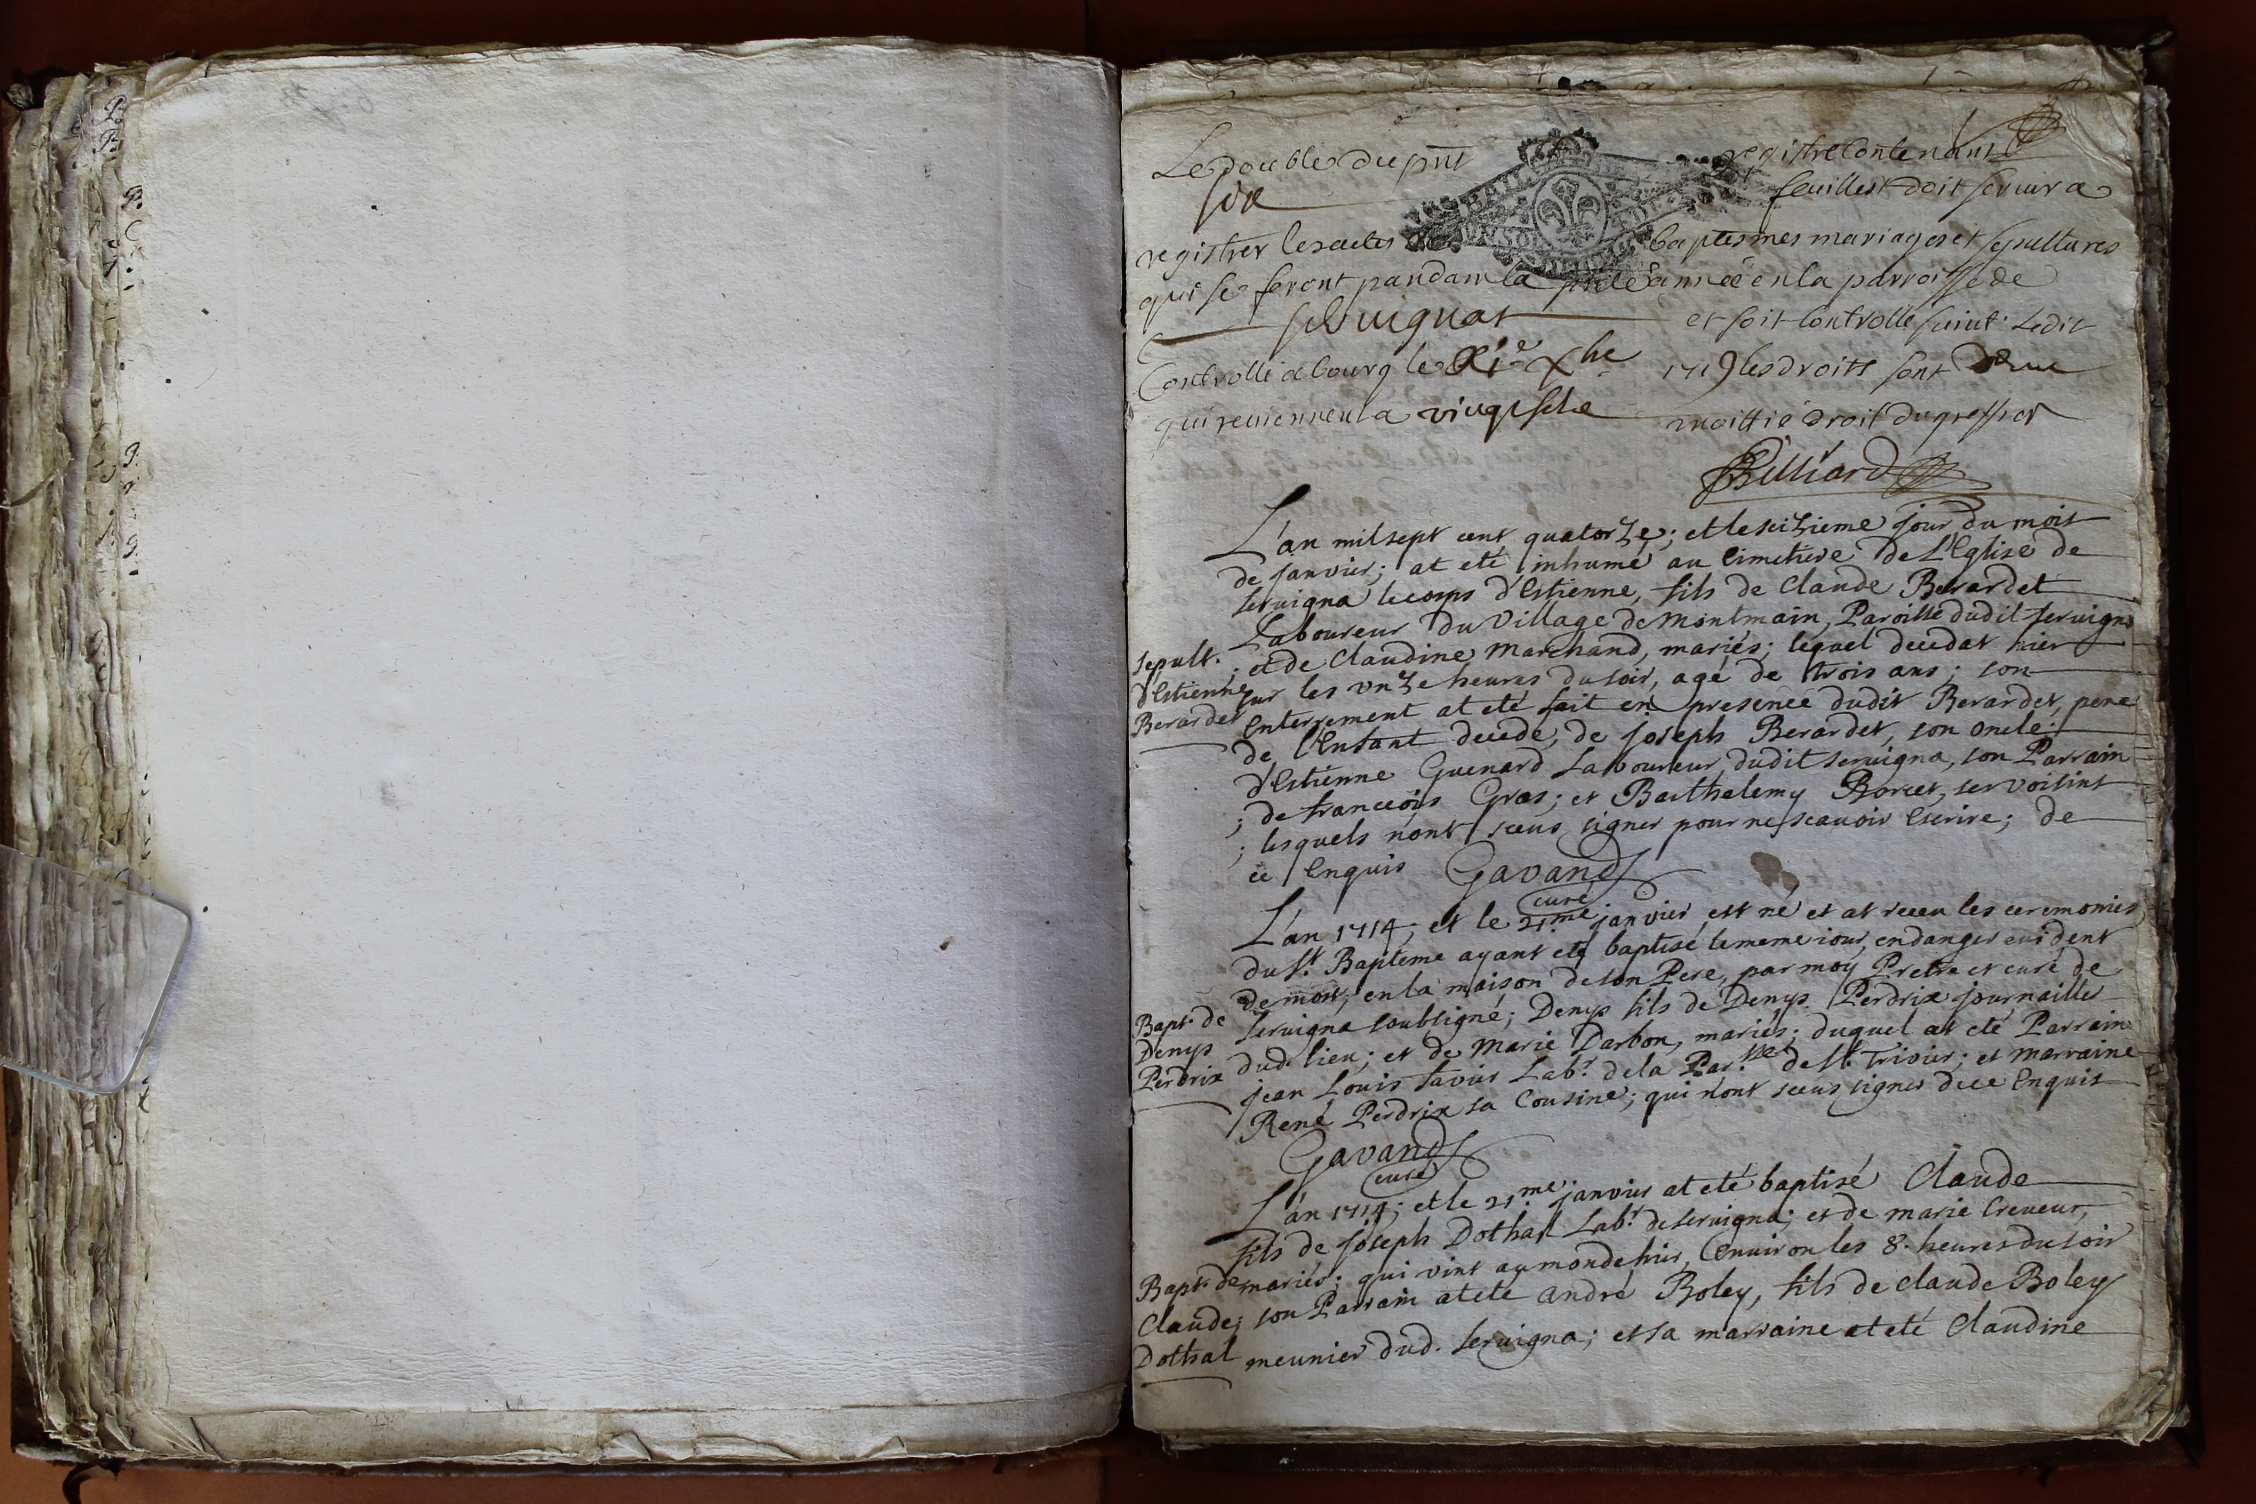 Le double du pnt registre Contenant
six feuillest doit servir a
registrer les actes de baptesmes mariages et sepultures
qui se feront pandant la pnte année en la parroisse de
servignat et soit Controlle suiut. Ledit
Controllé a bourg le Xbre les droits sont
qui reviennent a vingt sols moittié droit du greffier
Billiard
L'an mil sept cent quatorze; et le seizieme jour du mois
de janvier; at eté inhumé au Cimetiere de L'Eglise de
servigna le corps d'Estienne, fils de Claude Berardet
Laboureur du Village de Montmain, Paroisse dudit servigna
; et de Claudine Marchand, mariés; lequel decedat hier
sur les onze heures du soir, agé de trois ans; son
Enterrement at eté fait en presence dudit Berardet, pere
de l'Enfant decedé; de joseph Berardet, son oncle;
d'Estienne Guenard Laboureur dudit servigna, son Parrain
; de francois Gras; et Barthelemy Borcet, ses voisins
; lesquels n'ont sceus signer pour ne scavoir Escrire; de
ce Enquis Gavand
curé
sepult.
d'Estienne
Berardet
L'an 1714; et le 21.me janvier est né et at receu les ceremonies
du st. Bapteme ayant eté baptisé le meme iour, en danger evident
de mort, en la maison de son Pere, par moy Pretre et curé de
servigna soubsigné; Denys fils de Denys Perdrix journaillier
dud. lieu; et de Marie Darbon, mariés; duquel at eté Parrain
jean Louis favier Lab.r de la Par.sse de st. Trivier; et marraine
René Perdrix sa Cousine; qui n'ont sceus signer de ce Enquis
Gavand
curé
Bapt. de
Denys
Perdrix
L'an 1714; et le 21.me janvier at eté baptisé Claude
fils de joseph Dothal Lab.r de servigna; et de marie Creveur,
mariés; qui vint au monde hier, Environ les 8. heures du soir
; son Parrain at eté andré Boley, fils de claude Boley
meunier dud. servigna; et sa marraine at eté Claudine
Bapt. de
Claude
Dothal